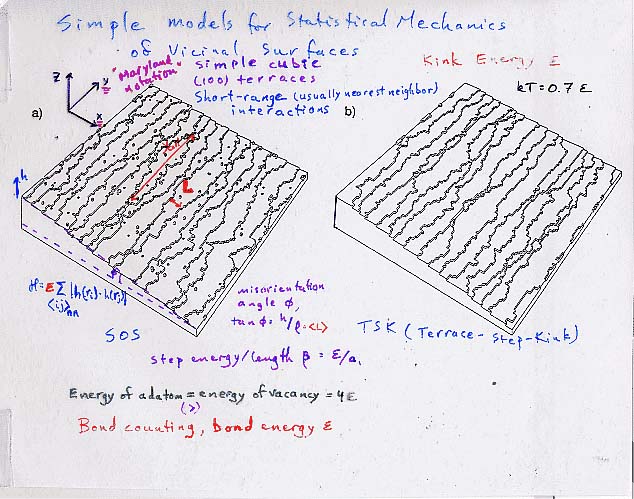 Simple models for Statistical Mechanics
of Vicinal Surfaces
"Maryland notation"
simple cubic
(100) terraces
Short-range (usually nearest neighbor)
interactions
Kink Energy ε
kT = 0.7 ε
z
y
x
a)
b)
h
L
ℋ = ε Σ |h(r_i) - h(r_j)|
<ij>nn
misorientation
angle φ,
tan φ = h/ℓ = <L>
SOS
TSK (Terrace-Step-Kink)
step energy/length β = ε/a.
Energy of adatom = energy of vacancy = 4ε
(>)
Bond counting, bond energy ε